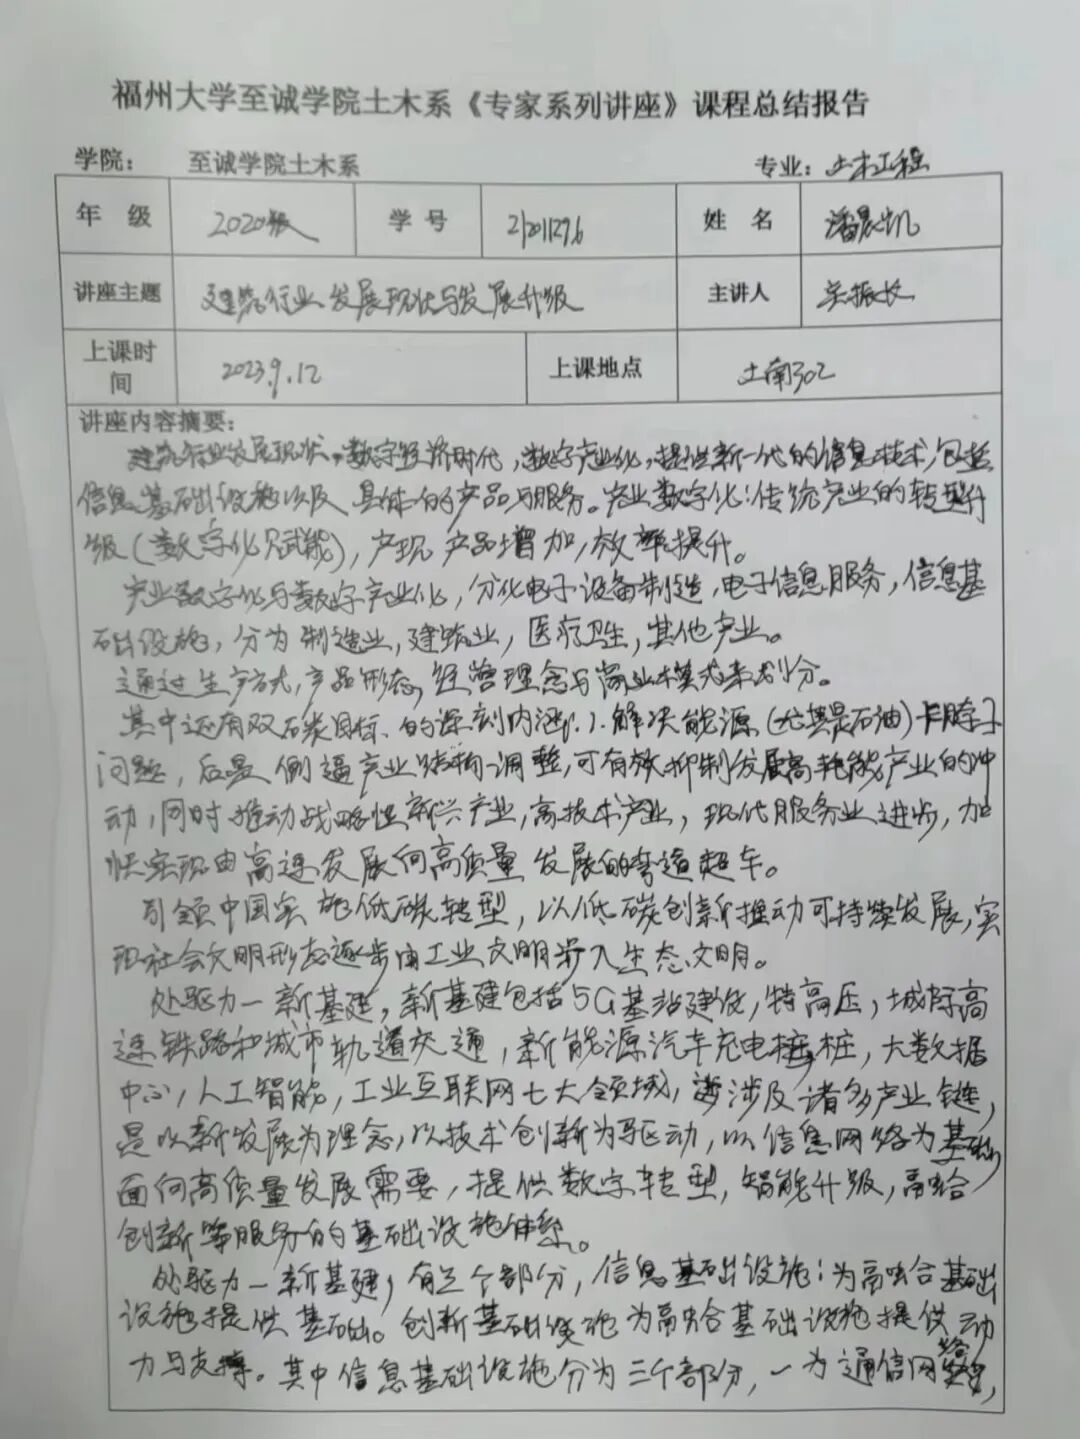 福州大学至诚学院土木系《专家系列讲座》课程总结报告
学院： 至诚学院土木系 专业：土木工程
年 级 2020级 学 号 姓 名 潘晨凯
讲座主题 建筑行业发展现状与发展升级 主讲人 振长
上课时间 2023.9.12 上课地点 土南302
讲座内容摘要：
建筑行业发展现状，数字经济时代，数字产业化，提供新一代的信息技术，包括
信息基础设施以及 具体的产品与服务。产业数字化：传统产业的转型升
级（数字化赋能），产现 产品增加，效率提升。
产业数字化与数字产业化，分化电子设备制造，电子信息服务，信息基
础设施，分为制造业，建筑业，医疗卫生，其他产业。
通过生产方式，产品形态，经营理念与商业模式来划分。
其中还有双石炭目标、的深刻内涵。1.解决能源（尤其是石油）卡脖子
问题，后是倒逼产业结构调整，可有效抑制发展高耗能产业的冲
动，同时推动战略性新兴产业，高技术产业，现代服务业进步，加
快实现由高速发展向高质量发展的弯道超车。
引领中国实施低碳转型，以低碳创新推动可持续发展，实
现社会文明形态逐步由工业文明步入生态文明。
处驱力一新基建，新基建包括5G基站建设，特高压，城际高
速铁路和城市轨道交通，新能源汽车充电桩，大数据
中心，人工智能，工业互联网七大领域，涉及诸多产业链，
是以新发展为理念，以技术创新为驱动，以信息网络为基础，
面向高质量发展需要，提供数字转型，智能升级，融合
创新等服务的基础设施体系。
处驱力一新基建，有三个部分，信息基础设施：为融合基础
设施提供基础。创新基础设施为融合基础设施提供动
力与支撑。其中信息基础设施分为三个部分，一为通信网络，